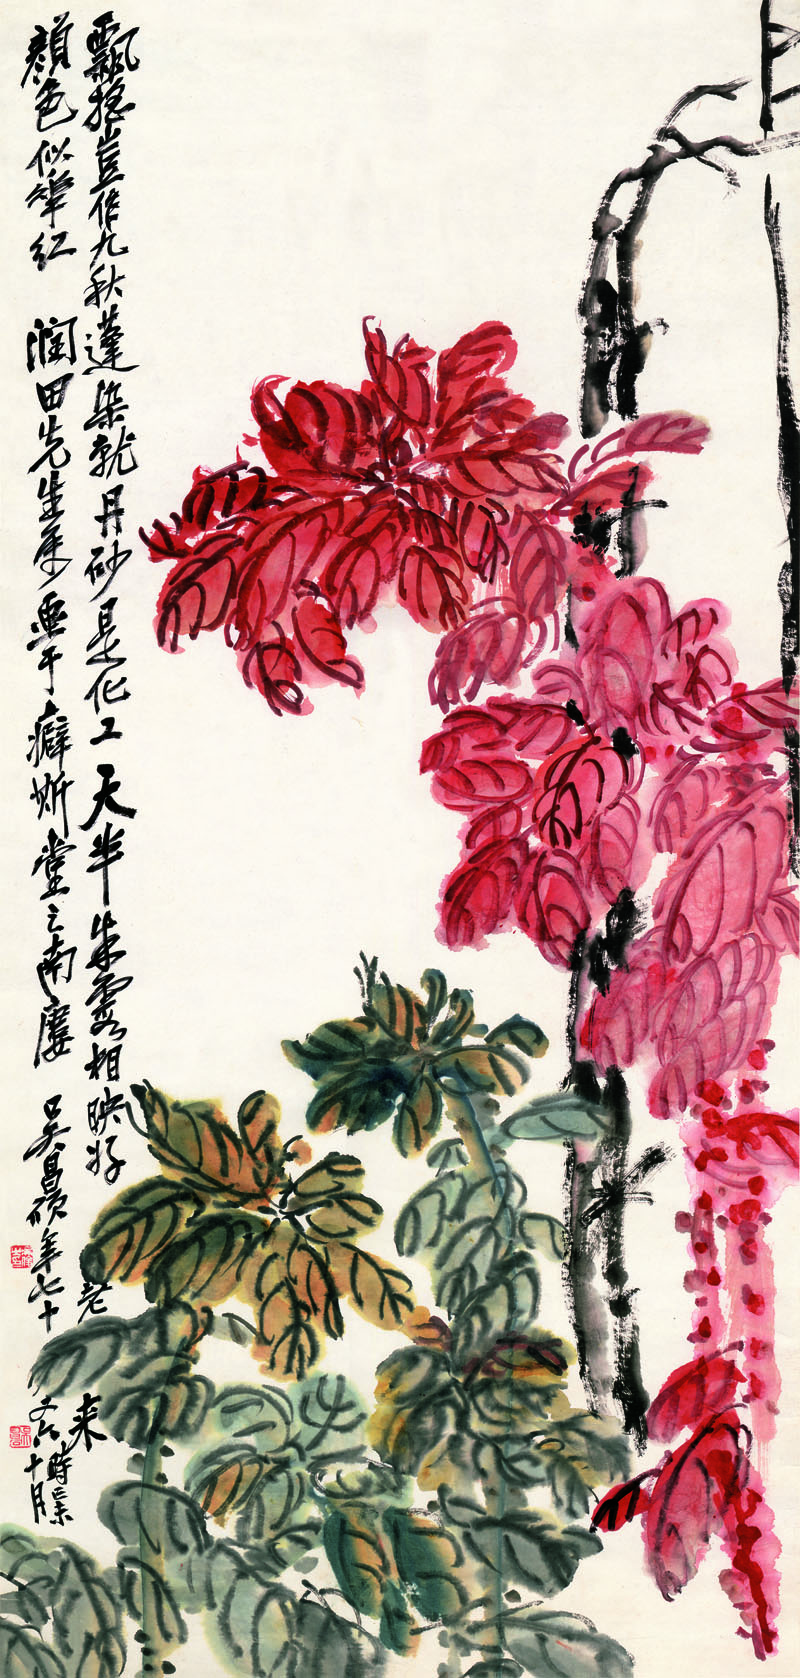 飄搖豈作九秋蓬染就丹砂是化工天半朱霞相映好老来
顏色似華紅 潤田先生屬畫于癖斯堂之南廔 吳昌碩年七十又六
時己未
十月